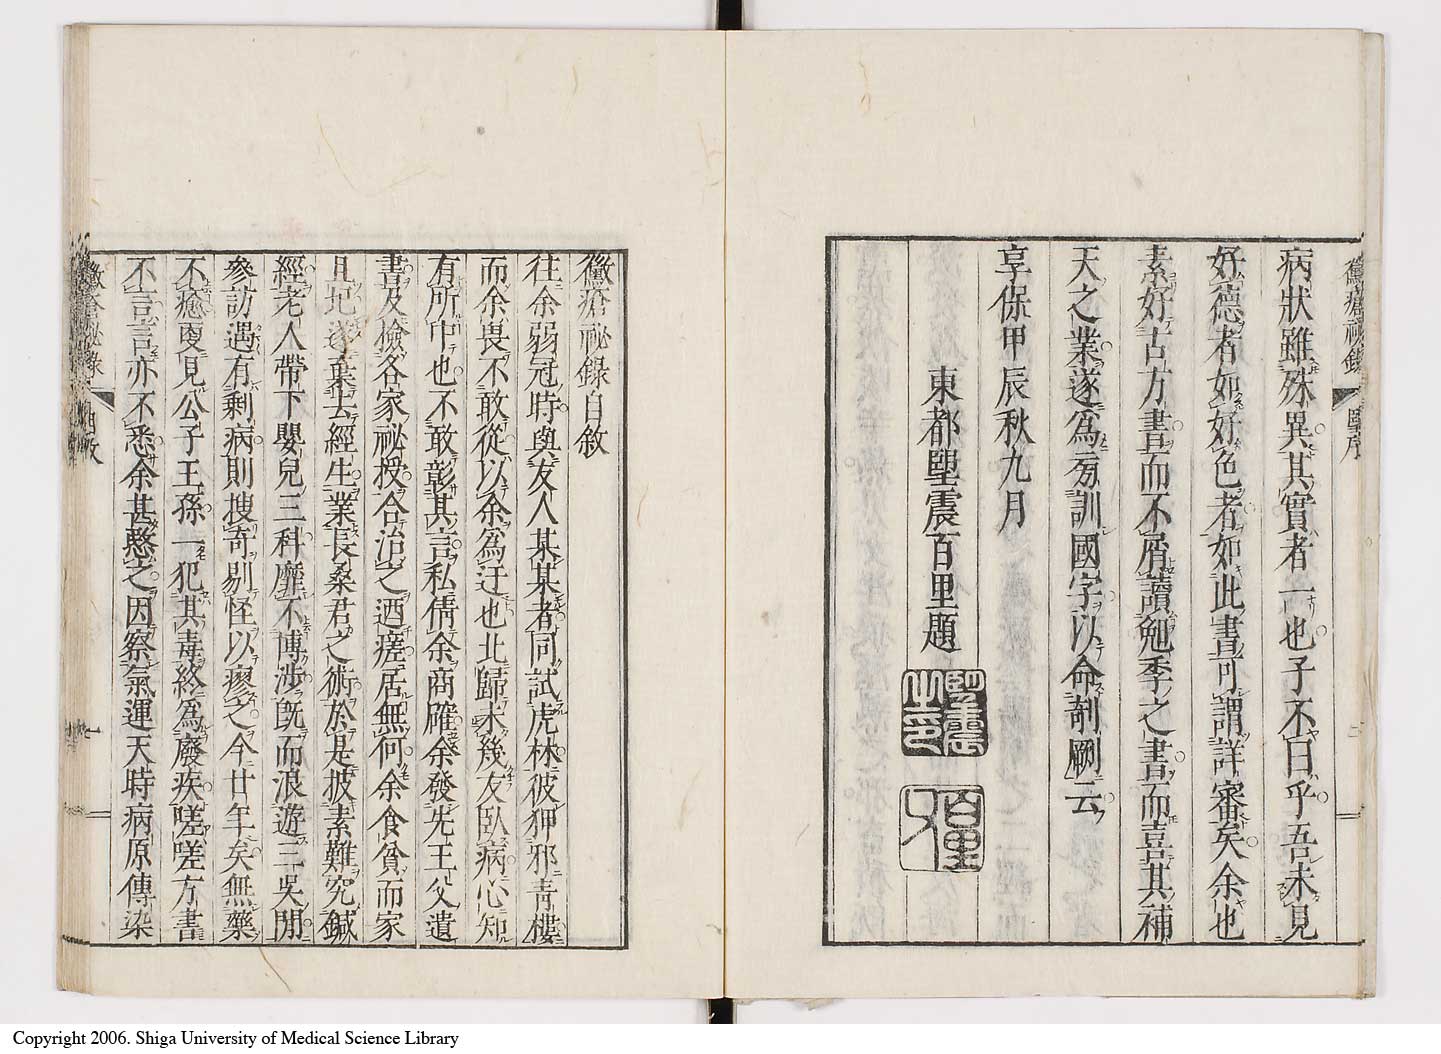 黴瘡祕録
病狀雖殊異其實者一也子不曰乎吾未見
好德者如好色者如此書可謂詳審矣余也
素好古方書而不屑讀勉季之書而喜其補
天之業遂為旁訓國字以命剞劂云
享保甲辰秋九月
東都朢震百里題
黴瘡祕録自敘
往余弱冠時與友人某某者同試虎林彼狎邪青樓
而余畏不敢從以余為迂也北歸未幾友臥病心知
有所中也不敢彰其言私倩余商確余發先王父遺
書及檢各家祕授合治之迺瘥居無何余食貧而家
圮遂棄去經生業長桑君之術於是披素難究鍼
經老人帶下嬰兒三科靡不博涉既而浪遊三吳閒
參訪遇有剩病則搜奇剔怪以瘳之今廿年矣無藥
不癒敻見公子王孫一犯其毒終為廢疾嗟嗟方書
不言言亦不悉余甚愍之因察氣運天時病原傳染